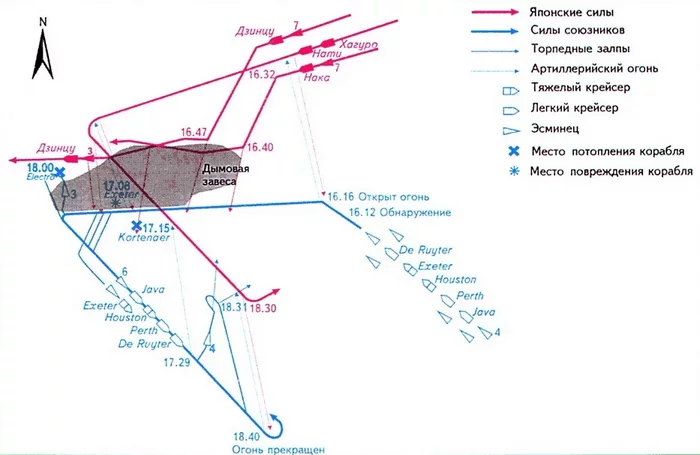 N
Дзинцу
7
Хагуро
Нати
7
Нака
16.32
16.47
16.40
Дзинцу
3
18.00
Electra
3
17.08
Exeter
Дымовая
завеса
17.15
Kortenaer
16.16 Открыт огонь
16.12 Обнаружение
De Ruyter
Exeter
Houston
Perth
Java
4
6
Java
Exeter
Houston
Perth
De Ruyter
17.29
4
18.31
18.30
18.40
Огонь прекращен
Японские силы
Силы союзников
Торпедные залпы
Артиллерийский огонь
Тяжелый крейсер
Легкий крейсер
Эсминец
Место потопления корабля
Место повреждения корабля